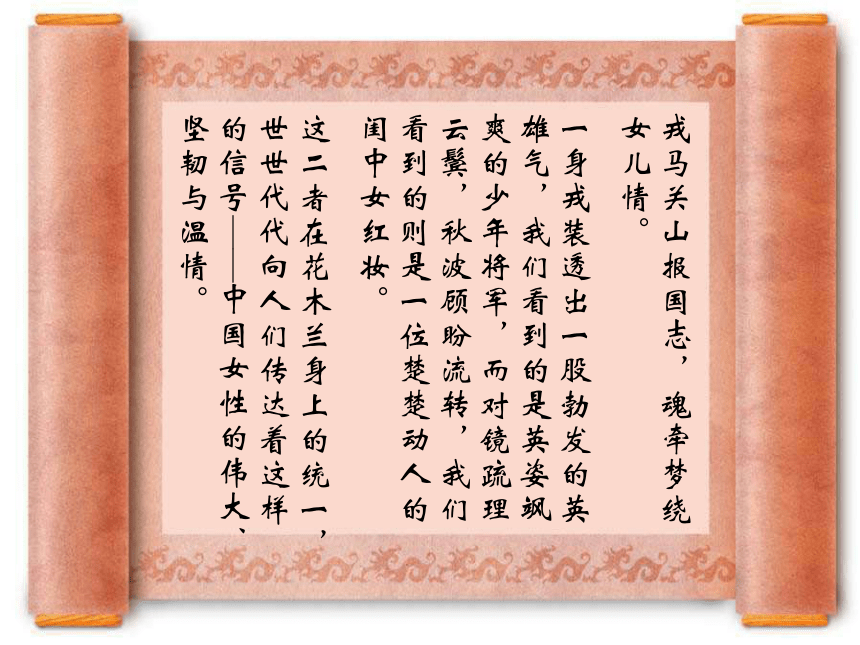 戎马关山报国志，魂牵梦绕
女儿情。
一身戎装透出一股勃发的英
雄气，我们看到的是英姿飒
爽的少年将军，而对镜疏理
云鬓，秋波顾盼流转，我们
看到的则是一位楚楚动人的
闺中女红妆。
这二者在花木兰身上的统一，
世世代代向人们传达着这样
的信号——中国女性的伟大、
坚韧与温情。